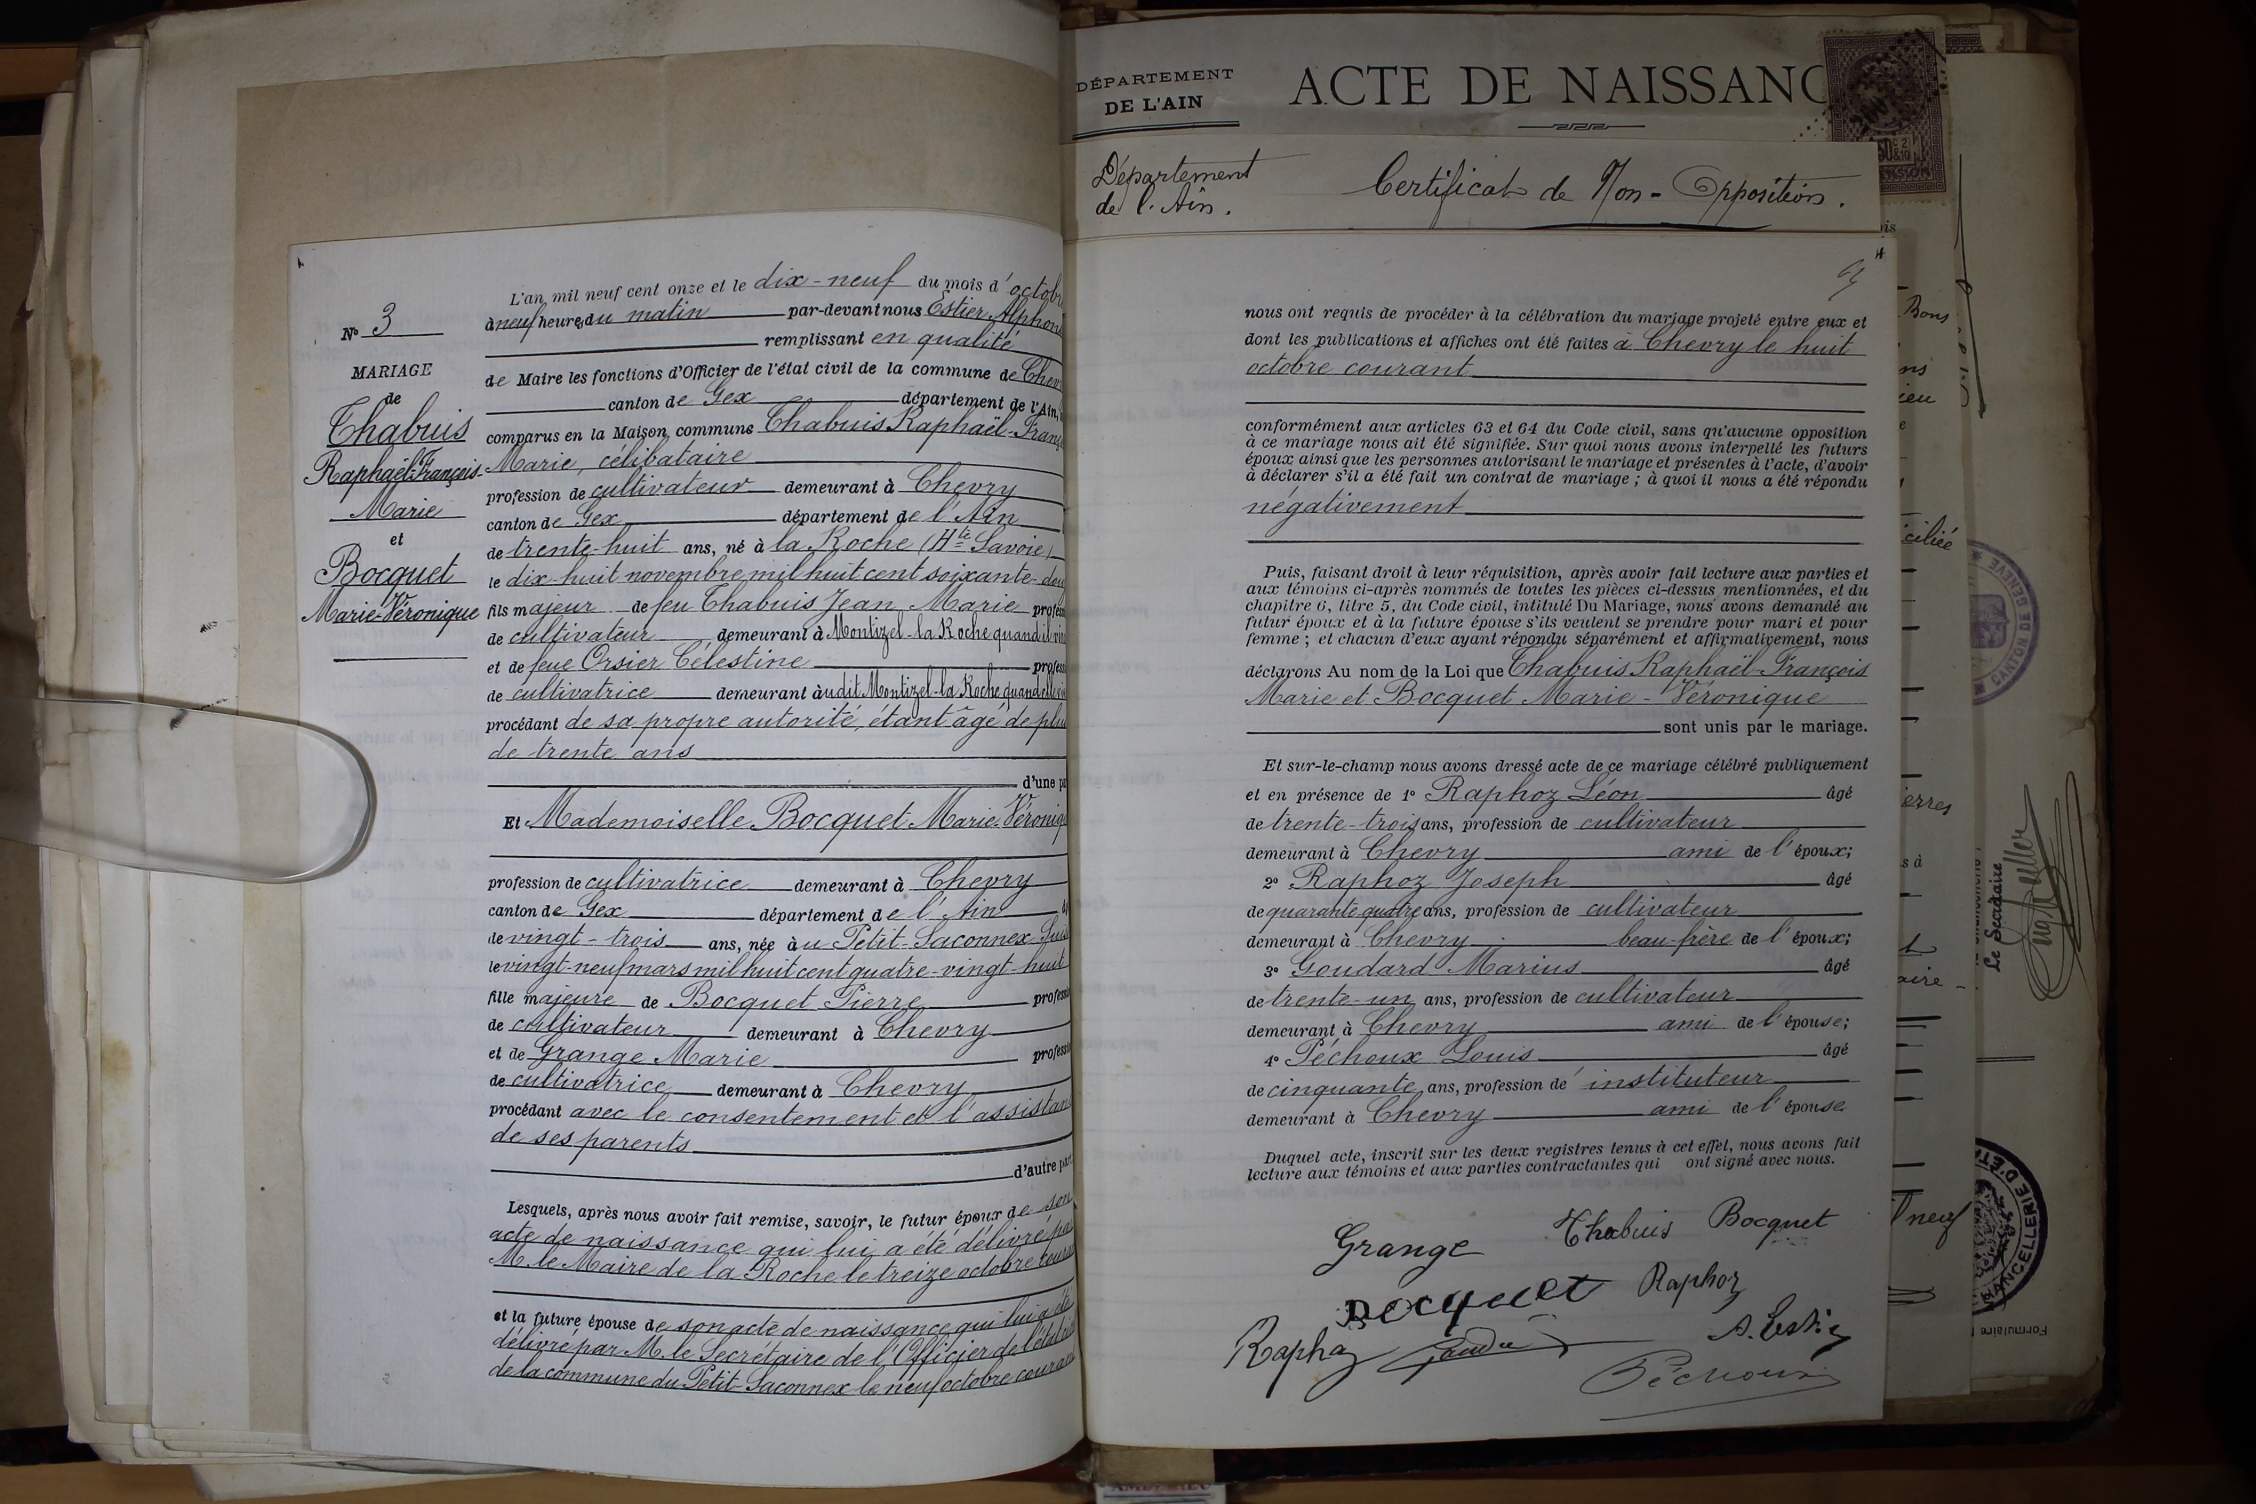 N° 3
MARIAGE
de
Thabuis
Raphaël-François-
Marie
et
Bocquet
Marie-Véronique
L'an mil neuf cent onze et le dix-neuf du mois d'octob
à neuf heures du matin par-devant nous Estier Alphon
remplissant en qualité
de Maire les fonctions d'Officier de l'état civil de la commune de Chev
canton de Gex département de l'Ain,
comparus en la Maison commune Thabuis Raphaël-Franç
Marie, célibataire
profession de cultivateur demeurant à Chevry
canton de Gex département de l'Ain
de trente-huit ans, né à la Roche (Hte Savoie)
le dix-huit novembre mil huit cent soixante-dou
fils majeur de feu Thabuis Jean Marie profess
de cultivateur demeurant à Montizel-la Roche quand il viv
et de feue Orsier Célestine profess
de cultivatrice demeurant àudit Montizel-la Roche quand elle v
procédant de sa propre autorité, étant âgé de plu
de trente ans
d'une pa
Et Mademoiselle Bocquet Marie-Véroniq
profession de cultivatrice demeurant à Chevry
canton de Gex département de l'Ain
de vingt-trois ans, née àu Petit-Saconnex-Suis
le vingt-neuf mars mil huit cent quatre-vingt-huit
fille majeure de Bocquet Pierre professi
de cultivateur demeurant à Chevry
et de Grange Marie professi
de cultivatrice demeurant à Chevry
procédant avec le consentement et l'assistan
de ses parents
d'autre part
Lesquels, après nous avoir fait remise, savoir, le futur époux de son
acte de naissance qui lui a été délivré pa
M. le Maire de la Roche le treize octobre coura
et la future épouse de son acte de naissance qui lui a été
délivré par M. le Secrétaire de l'Officier de l'état
de la commune du Petit-Saconnex le neuf octobre couran
DÉPARTEMENT
DE L'AIN
ACTE DE NAISSANC
Département
de l'Ain.
Certificat de Non-Opposition.
nous ont requis de procéder à la célébration du mariage projeté entre eux et
dont les publications et affiches ont été faites à Chevry le huit
octobre courant
conformément aux articles 63 et 64 du Code civil, sans qu'aucune opposition
à ce mariage nous ait été signifiée. Sur quoi nous avons interpellé les futurs
époux ainsi que les personnes autorisant le mariage et présentes à l'acte, d'avoir
à déclarer s'il a été fait un contrat de mariage ; à quoi il nous a été répondu
négativement
Puis, faisant droit à leur réquisition, après avoir fait lecture aux parties et
aux témoins ci-après nommés de toutes les pièces ci-dessus mentionnées, et du
chapitre 6, titre 5, du Code civil, intitulé Du Mariage, nous avons demandé au
futur époux et à la future épouse s'ils veulent se prendre pour mari et pour
femme ; et chacun d'eux ayant répondu séparément et affirmativement, nous
déclarons Au nom de la Loi que Thabuis Raphaël-François
Marie et Bocquet Marie-Véronique
sont unis par le mariage.
Et sur-le-champ nous avons dressé acte de ce mariage célébré publiquement
et en présence de 1° Raphoz Léon âgé
de trente-trois ans, profession de cultivateur
demeurant à Chevry ami de l'époux;
2° Raphoz Joseph âgé
de quarante quatre ans, profession de cultivateur
demeurant à Chevry beau-frère de l'époux;
3° Goudard Marius âgé
de trente-un ans, profession de cultivateur
demeurant à Chevry ami de l'épouse;
4° Péchoux Louis âgé
de cinquante ans, profession d' instituteur
demeurant à Chevry ami de l'épouse.
Duquel acte, inscrit sur les deux registres tenus à cet effet, nous avons fait
lecture aux témoins et aux parties contractantes qui ont signé avec nous.
Grange Thabuis Bocquet
Bocquet Raphoz
Raphoz A. Estier
Péchoux
Bons
ciliée
CANTON DE GENÈVE
Le Secrétaire
neuf
CHANCELLERIE D'ÉTA
Formulaire